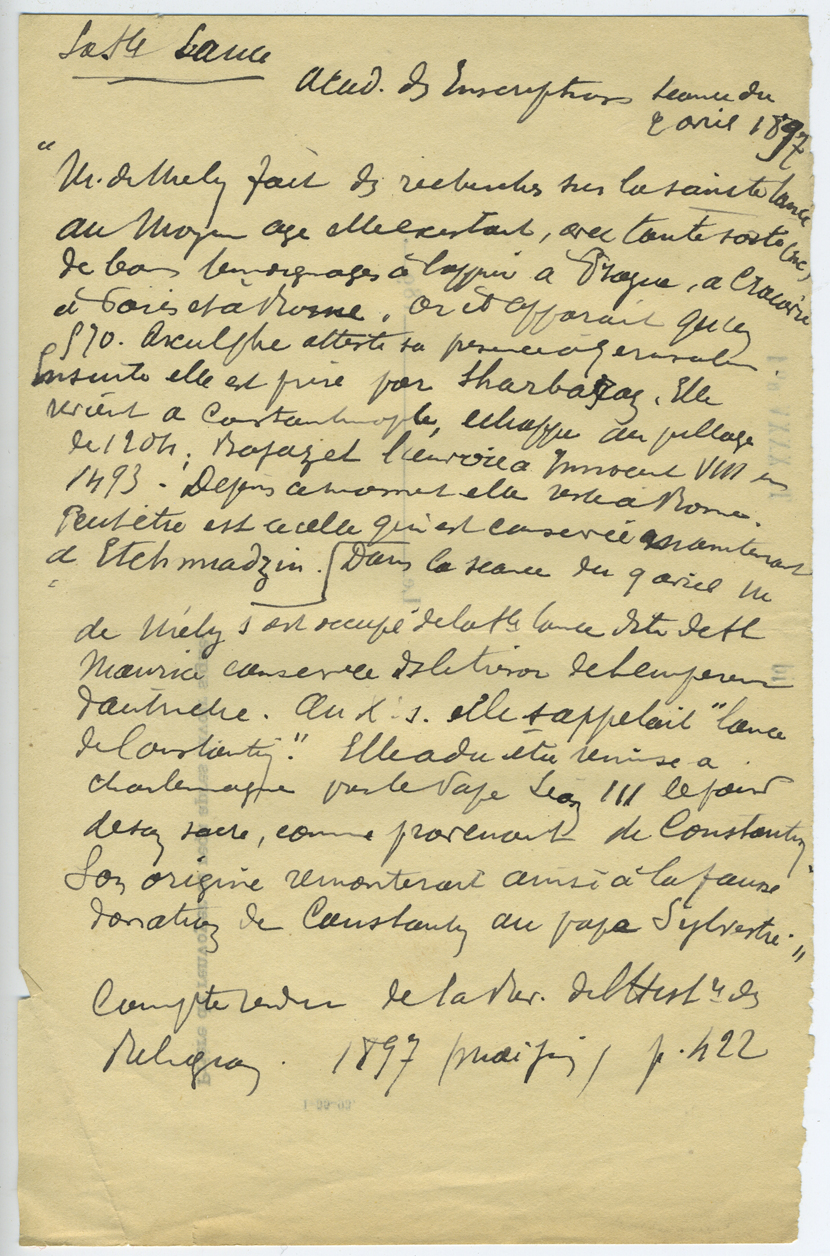 La Ste Lance
Acad. des Inscriptions seance du
2 avril 1897
"M. de Mely fait des recherches sur la sainte lance
au Moyen age elle existait, avec toute sorte (sic)
de bons temoignages à l'appui a Prague, a Cracovie
à Paris et à Rome. Or il apparait qu'en
570. Arculphe atteste sa presence à Jerusalem.
Ensuite elle est prise par Sharbaraz. Elle
revient a Constantinople, echappe au pillage
de 1204; Bajazet l'envoie a Innocent VIII en
1493 - Depuis ce moment elle reste à Rome.
Peut être est ce celle qui est conservée maintenant
a Etchmiadzin. [Dans la seance du 9 avril M
de Mély s'est occupé de la Ste lance dite de St
Maurice conservée ds le trésor de l'empereur
d'autriche. Au X s. elle s'appelait "lance
de Constantin". Elle a du être remise a
Charlemagne par le Pape Leon III le jour
de son sacre, comme provenant de Constantin
Son origine remonterait ainsi à la fausse
donation de Constantin au pape Sylvestre."
Compte rendu de la Rev. de l'Hist re des
Religions. 1897 (mai juin) p. 422